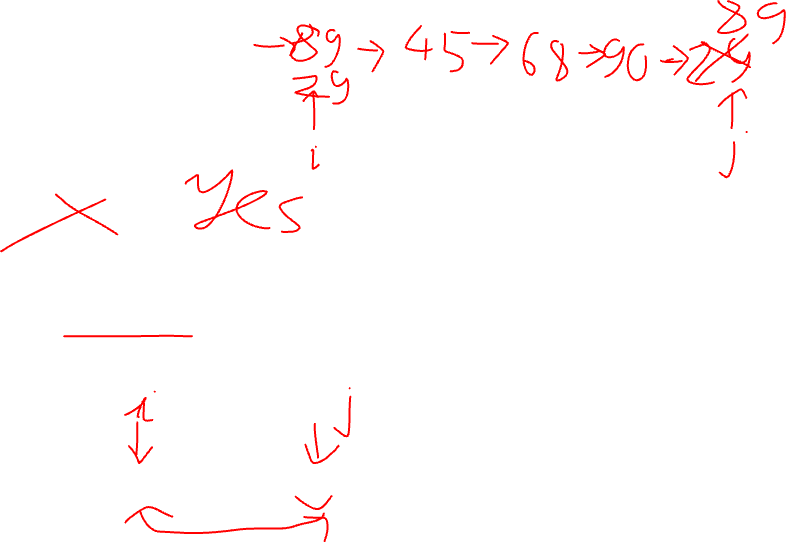 89
→89→45→68→90→29
29
i j
Yes
i j